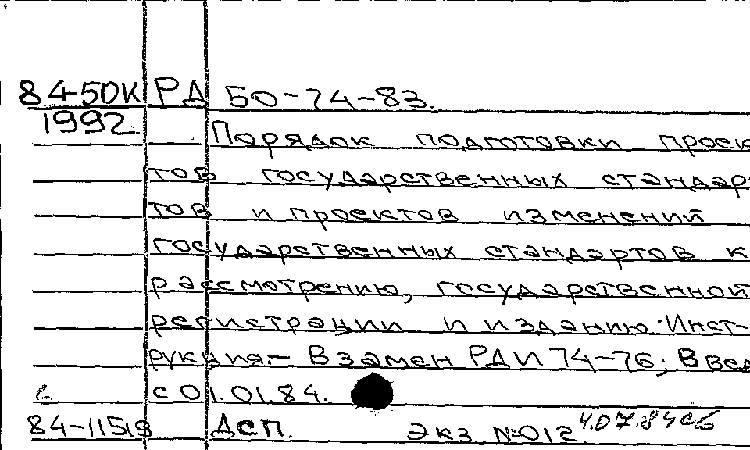 84-50К РД 50-74-83.
1992 Порядок подготовки проек
тов государственных стандар
тов и проектов изменений
государственных стандартов к
рассмотрению, государственной
регистрации и изданию. Инст-
рукция.- Взамен РДИ 74-76; Введ
с 01.01.84.
84-11519 Дсп. Экз №012